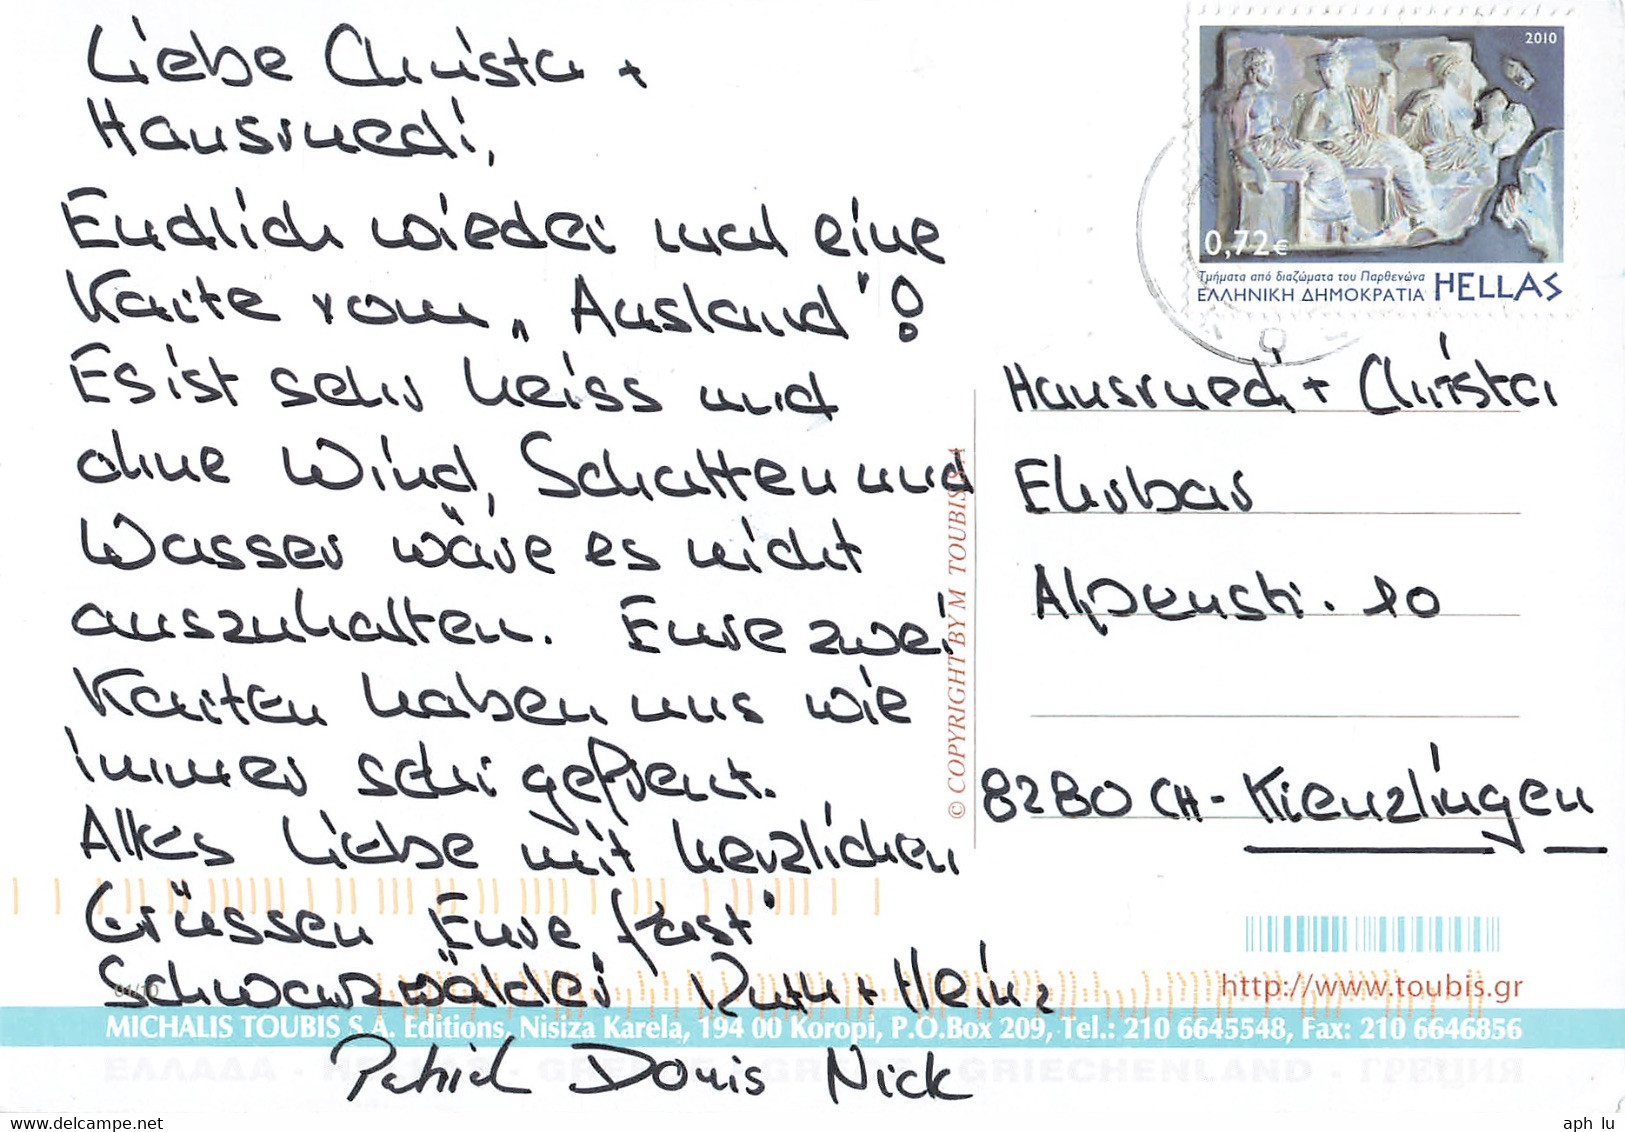 Liebe Christa +
Hansruedi,
Endlich wieder mal eine
Karte vom „Ausland"!
Es ist sehr heiss und
ohne Wind, Schatten und
Wasser wäre es nicht
auszuhalten. Eure zwei
Karten haben uns wie
immer sehr gefreut.
Alles Liebe mit herzlichen
Grüssen Eure „fast"
Schwarzwälder Ruth + Heinz
Patrick Doris Nick
2010
0,72€
Τμήματα από διαζώματα του Παρθενώνα
ΕΛΛΗΝΙΚΗ ΔΗΜΟΚΡΑΤΙΑ HELLAS
Hansruedi + Christa
Ehrbar
Alpenstr. 20
8280 CH - Kreuzlingen
© COPYRIGHT BY M TOUBIS S.A
01/10
http://www.toubis.gr
MICHALIS TOUBIS S.A. Editions, Nisiza Karela, 194 00 Koropi, P.O.Box 209, Tel.: 210 6645548, Fax: 210 6646856
ΕΛΛΑΔΑ - HELLAS - GREECE - GRECE - GRIECHENLAND - ГРЕЦИЯ
aph lu